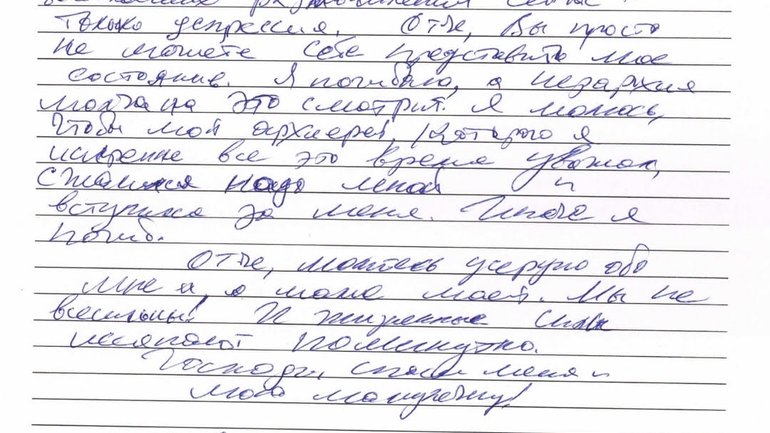 только депрессия. Отче, Вы просто
не можете себе представить мое
состояние. Я погибаю, а иерархия
молча на это смотрит. Я молюсь,
чтобы мой архиерей, которого я
искренне все это время уважал,
сжалился надо мной и
вступился за меня. Иначе я
погиб.
Отче, молитесь усердно обо
мне и о маме моей. Мы не
всесильны! И жизненные силы
иссякают поминутно.
Господи, спаси меня и
мою мамулечку!